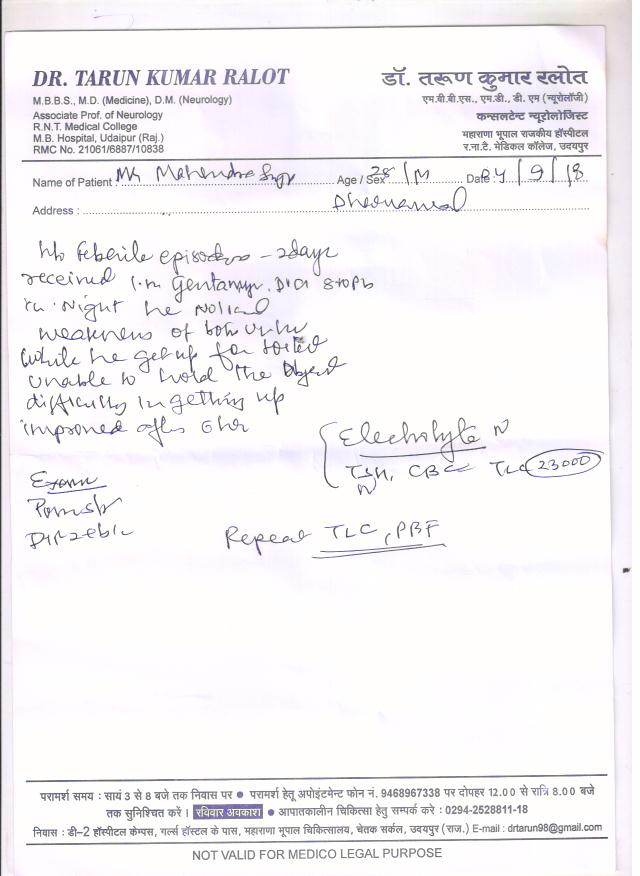 DR. TARUN KUMAR RALOT
M.B.B.S., M.D. (Medicine), D.M. (Neurology)
Associate Prof. of Neurology
R.N.T. Medical College
M.B. Hospital, Udaipur (Raj.)
RMC No. 21061/6887/10838
डॉ. तरूण कुमार रलोत
एम.बी.बी.एस., एम.डी., डी. एम (न्यूरोलॉजी)
कन्सलटेन्ट न्यूरोलोजिस्ट
महाराणा भूपाल राजकीय हॉस्पीटल
र.ना.टै. मेडिकल कॉलेज, उदयपुर
Name of Patient Mr Mahendra Age / Sex 28/M Date 24/9/18
Address :
H/o Feberile episodes - 2days
received I.m
in night he Noticed
weakness of both
while he getup for toilet
unable to hold the object
difficulty in getting up
improved after 6hr
Electrolyte N
TSH, CBC TLC 23000
N
Exam
Repeat TLC, PBF
परामर्श समय : सायं 3 से 8 बजे तक निवास पर ● परामर्श हेतू अपोइंटमेन्ट फोन नं. 9468967338 पर दोपहर 12.00 से रात्रि 8.00 बजे
तक सुनिश्चित करें । रविवार अवकाश ● आपातकालीन चिकित्सा हेतु सम्पर्क करे : 0294-2528811-18
निवास : डी-2 हॉस्पीटल केम्पस, गर्ल्स हॉस्टल के पास, महाराणा भूपाल चिकित्सालय, चेतक सर्कल, उदयपुर (राज.) E-mail : drtarun98@gmail.com
NOT VALID FOR MEDICO LEGAL PURPOSE